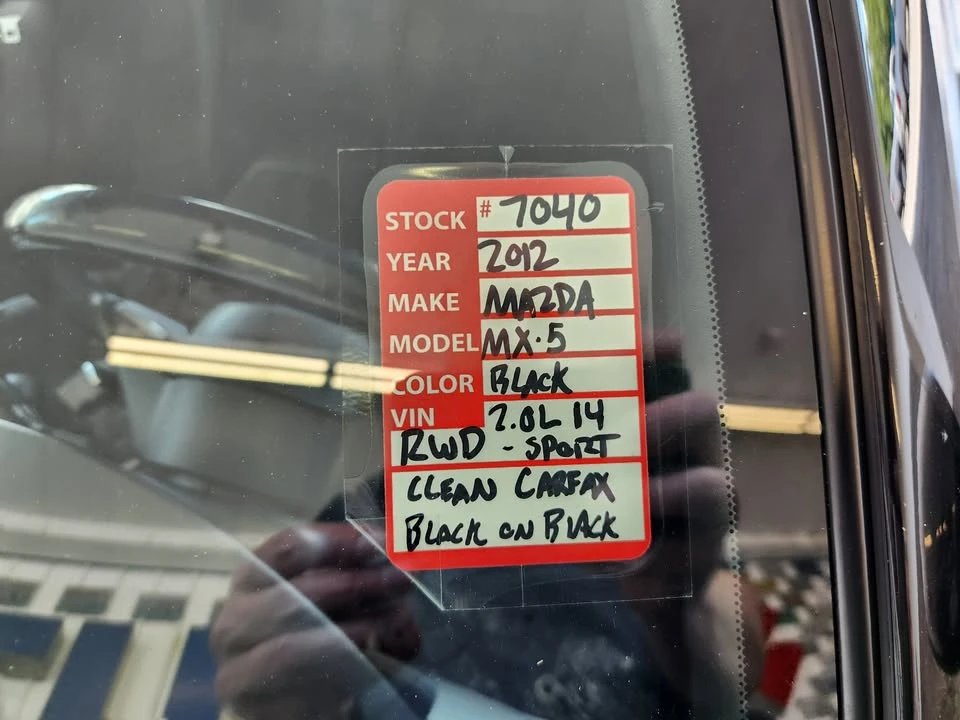 STOCK # 7040
YEAR 2012
MAKE MAZDA
MODEL MX-5
COLOR BLACK
VIN 2.0L I4
RWD - SPORT
CLEAN CARFAX
BLACK ON BLACK